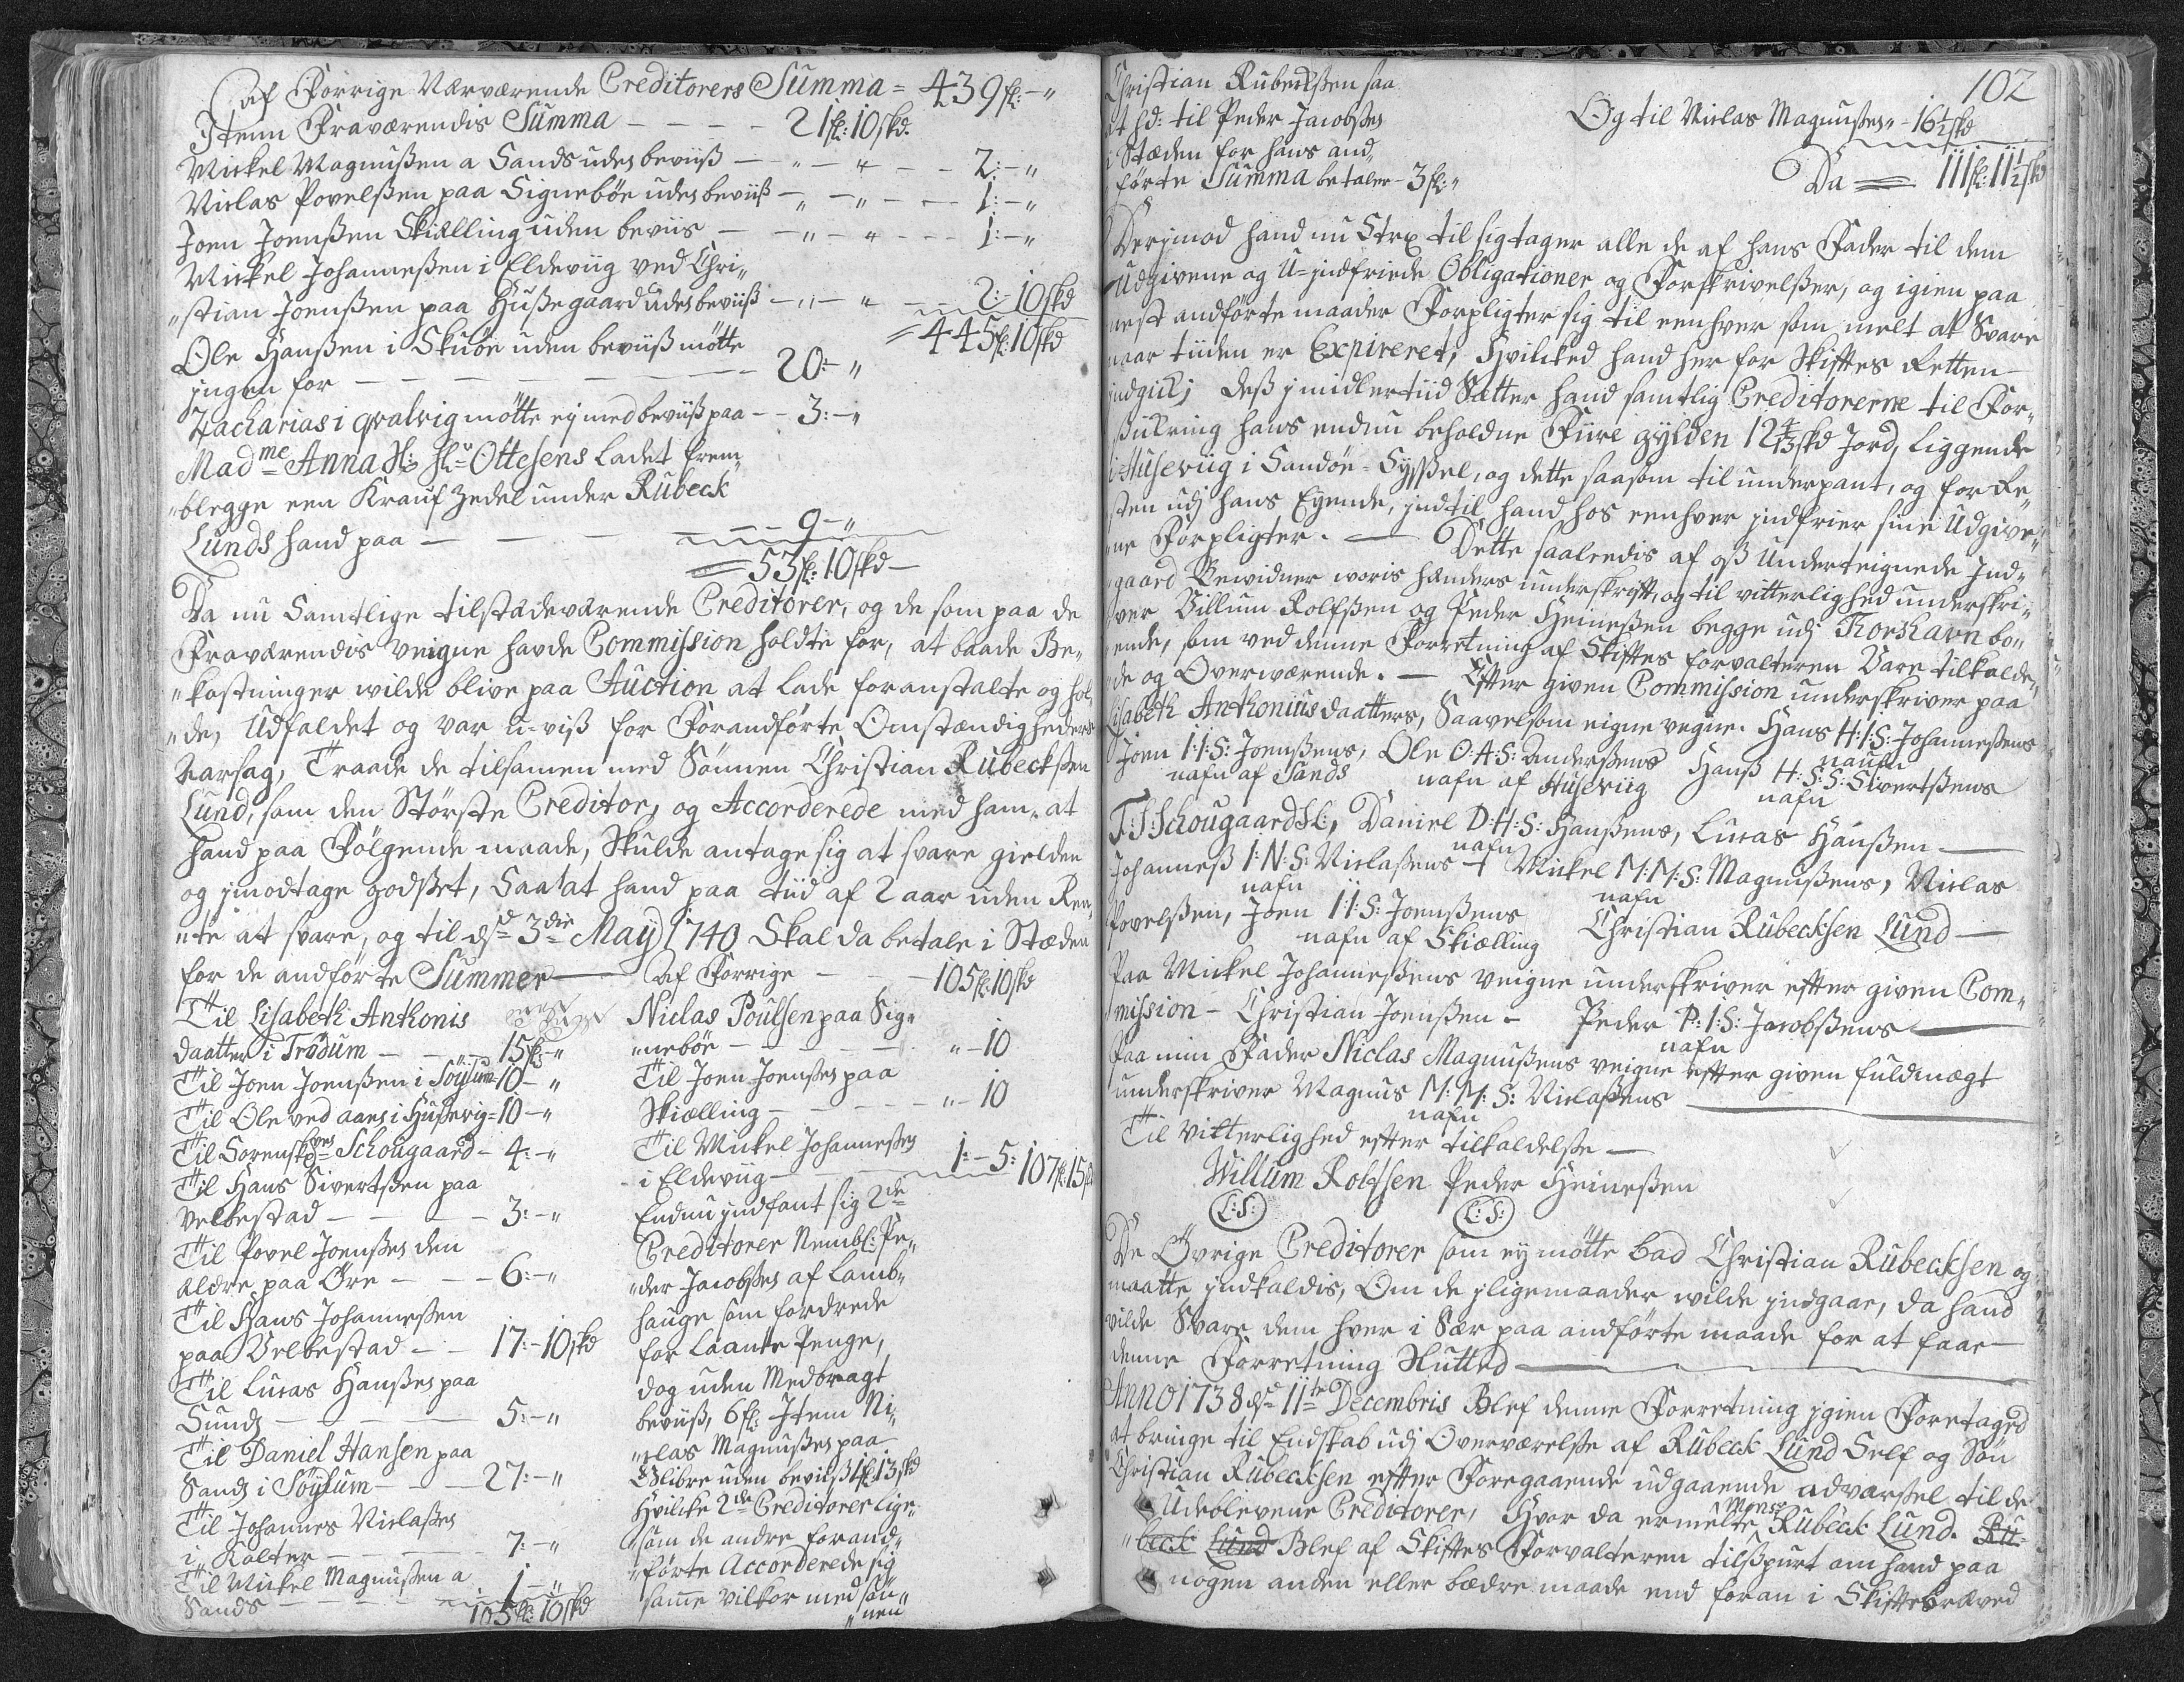 af Forrige Nærværende Creditorers Summa = 439 fl: - "
Jtem Fraværendis Summa - - - - 21 fl: 10 skd.
Mickel Magnußen a Sands uden beviiß - " - " - - 2: - "
Niclas Povelßen paa Signebøe uden beviiß - " - " - - 1: - "
Joen Joenßen Skiælling uden beviis - - " - " - - 1: - "
Mickel Johanneßen i Eldeviig ved Chri„
„stian Joenßen paa Hußegaard uden beviiß - " - " - - 2: 10 skd
= 445 fl: 10 skd
Ole Hanßen i Skuøe uden beviiß møtte
jngen for - - - - - - 20: - "
Zacharias i qvalvig møtte ey med beviiß paa - - 3: - "
Madme Anna Sl: Hr Ottesens ladet frem„
„blegge een Krauf Zedel under Rubeck
Lunds hand paa - - - - - 9 - "
= 53 fl: 10 skd -
Da nu Samtlige tilstædeværende Creditorer, og de som paa de
Fraværendis veigne havde Commission holdte for, at baade Be„
„kostninger wilde blive paa Auction at lade foranstalte og hol„
„de, Udfaldet og var u-viß for Forandførte Omstændigheders
Aarsag, Traade de tilsamen med Sønnen Christian Rubeckßen
Lund, som den Største Creditor, og Accorderede med ham, at
hand paa Følgende maade, Skulde antage sig at svare gielden
og jmodtage godset, Saa at hand paa tiid af 2 aar uden Ren„
„te at svare, og til dd 3die May 1740 Skal da betale i Stæden
for de andførte Summer
Til Lisabeth Anthonis
daatter i Trødum - - - 15 fl: - "
Til Joen Joenßen i Søylum - 10 - "
Til Ole ved aaen i Hußevig = 10 - "
Til Sorenskrves Schougaard - 4: - "
Til Hans Sivertßen paa
Velbestad - - - - 3: - "
Til Povel Joenßen den
ældre paa Øre - - - 6: - "
Til Hans Johanneßen
paa Velbestad - - 17: - 10 skd
Til Lucas Hanßen paa
Sund - - - - 5: - "
Til Daniel Hansen paa
Sand i Søylum - - - 27: - "
Til Johannes Niclaßen
i Kolter - - - - 7: - "
Til Mickel Magnußen a
Sands - - - - 1 - "
105 fl: 10 skd
af Forrige - - - 105 fl: 10 skd
Niclas Poulsen paa Sig„
„nebøe - - - - - " - 10
Til Joen Joenßen paa
Skiælling - - - - " - 10
Til Mickel Johanneßen
i Eldeviig - - 1: - 5: 107 fl: 15 skd
Endnu jndfant sig 2de
Creditorer Nembl: Pe„
„der Jacobßen af Lamb„
hauge som fordrede
for Laante Penge,
dog uden Medbragt
beviiß, 6 fl: Jtem Ni„
„clas Magnußen paa
Glibre uden beviiß 1 fl: 13 skd
Hvilcke 2de Creditorer lige„
„som de andre forand„
„førte Accorderede sig
same vilkor med søn„
„nen
102
Christian Rubeckßen saa
at hd: til Peder Jacobßen
i Stæden for hans and„
førte Summa betaler - 3 fl: "
Og til Niclas Magnußen " - 16 1/2 skd
Da = 111 fl: 11 1/2 skd
Derjmod hand nu Strx til sig tager alle de af hans Fader til dem
Udgivene og U-jndfriede Obligationer og Forskrivelßer, og igien paa
nest andførte maader Forpligter sig til eenhver som melt at Svare
naar tiiden er Expireret, Hvilcked hand her for Skiftes Retten
jndgick; Deß jmidlertiid Sætter hand samtlig Creditorerne til For„
„sickring hans endnu beholdne Fiire gylden 12 4/3 skd Jord, liggende
i Huseviig i Sandøe-Syßel, og dette saasom til underpant, og for Re„
sten udj hans Eyende, jndtil hand hos eenhver jndfrier sine Udgive„
„ne Forpligter. — Dette saaledis af oß Underteignede Jnd„
„gaard Bevidner woris Hænders underskrifft, og til vitterlighed underskri„
„ver Villum Rolfßen og Peder Heineßen begge udj Thorshavn bo„
„ende, som ved denne Forretning af Skiftes forvalteren Vare tilkalde„
„de og Overværende. — Efter given Commission underskriver paa
Lisabeth Anthonius daatters, Saavelsom eigne vegne. Hans H:I:S: Johanneßens
naufn
Joen I:I:S: Joenßens, Ole O:A:S: Anderßens Hanß H:S:S: Sivertßens
nafn af Sands nafn af Huseviig nafn
T:S:Schougaard Sl:, Daniel D:H:S: Hanßens, Lucas Hanßen —
nafn
Johanneß I:N:S: Niclaßens — Mickel M:M:S: Magnußens, Niclas
nafn nafn
Povelßen, Joen I:I:S: Joenßens Christian Rubecksen Lund —
nafn af Skiælling
Paa Mickel Johanneßens veigne underskriver efter given Com„
„mission - Christian Joenßen - Peder P:I:S: Jacobßens —
nafn
Paa min Fader Niclas Magnußens veigne efter given fuldmagt
underskriver Magnus M:M:S: Niclaßens —
nafn
Til Vitterlighed efter tilkaldelße —
Willum Rolfsen Peder Heineßen
(L:S:) (L:S:)
De Øvrige Creditorer som ey møtte bad Christian Rubecksen og
maatte jndkaldis, Om de jligemaader wilde jndgaae, da hand
vilde Svare dem hver i Sær paa andførte maade for at faae
denne Forretning Slutted —
Anno 1738 dd 11te Decembris Blef denne Forretning jgien Foretaged
at bringe til Endskab udj Overværelße af Rubeck Lund Self og Søn
Christian Rubecksen efter Foregaaende udgaaende advarßel til de
Udeblevene Creditorer, Hvor da ermelte Monsr Rubeck Lund. Ru„
„beck Lund Blef af Skiftes Forvalteren tilspurt om hand paa
nogen anden eller bædre maade end foran i Skiftebræved